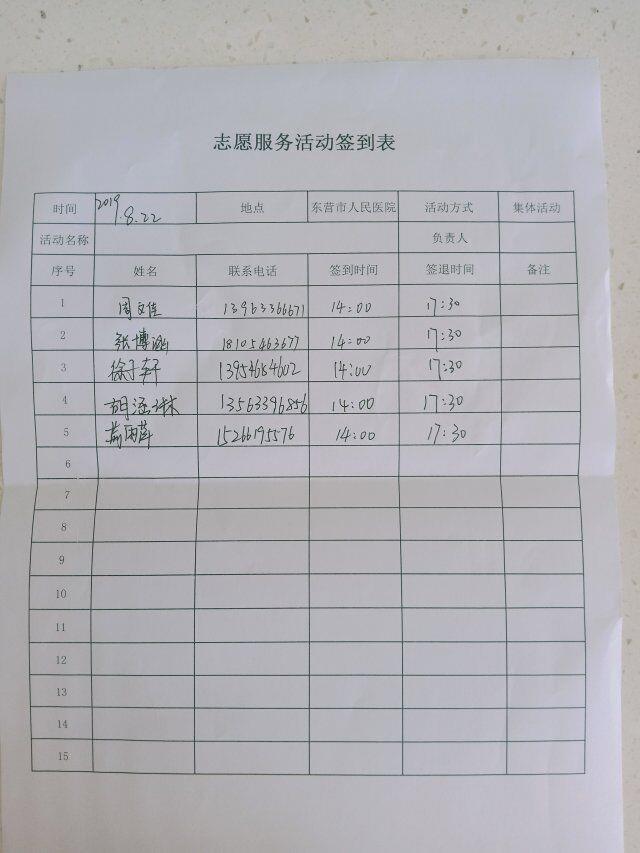 志愿服务活动签到表
时间 2019.8.22 地点 东营市人民医院 活动方式 集体活动
活动名称 负责人
序号 姓名 联系电话 签到时间 签退时间 备注
1 周文佳 13963366671 14:00 17:30
2 张博涵 18105463677 14:00 17:30
3 徐子轩 13954684602 14:00 17:30
4 胡涵琳 13563396856 14:00 17:30
5 15266195576 14:00 17:30
6
7
8
9
10
11
12
13
14
15